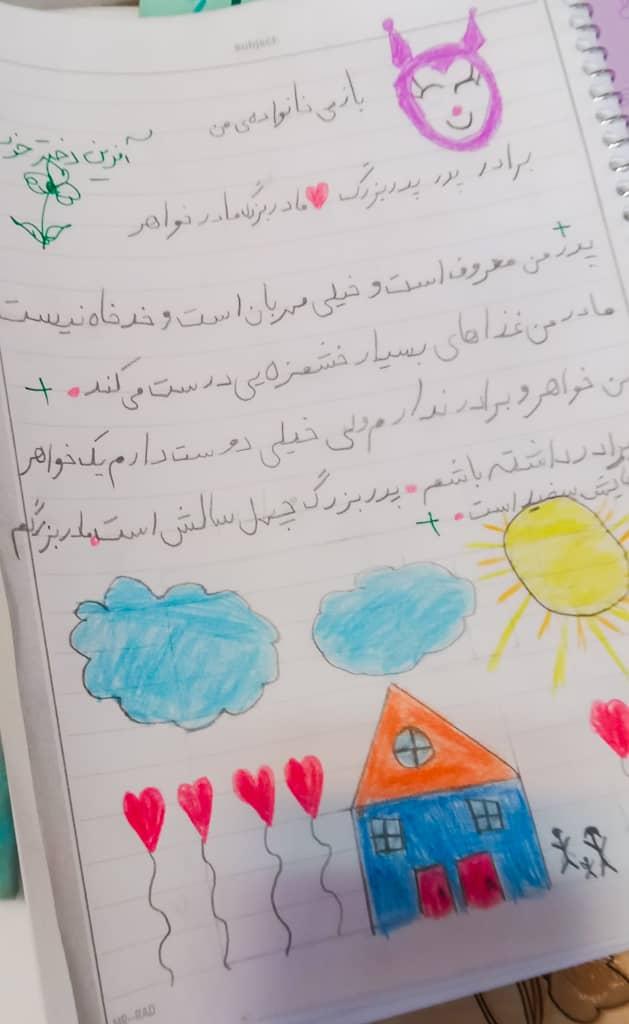 subject
بازمی خانواده‌ی من
آفرین دختر خوب
برادر پدر پدربزرگ مادربزرگ مادر خواهر
پدر من معروف است و خیلی مهربان است و خدخاه نیست
مادر من غذاهای بسیار خشمزه‌یی درست می‌کند.
من خواهر و برادر ندارم ولی خیلی دوست دارم یک خواهر
برادر داشته باشم. پدربزرگ چهل سالش است. مادربزرگم
هایش سفید است.
MR-RAD